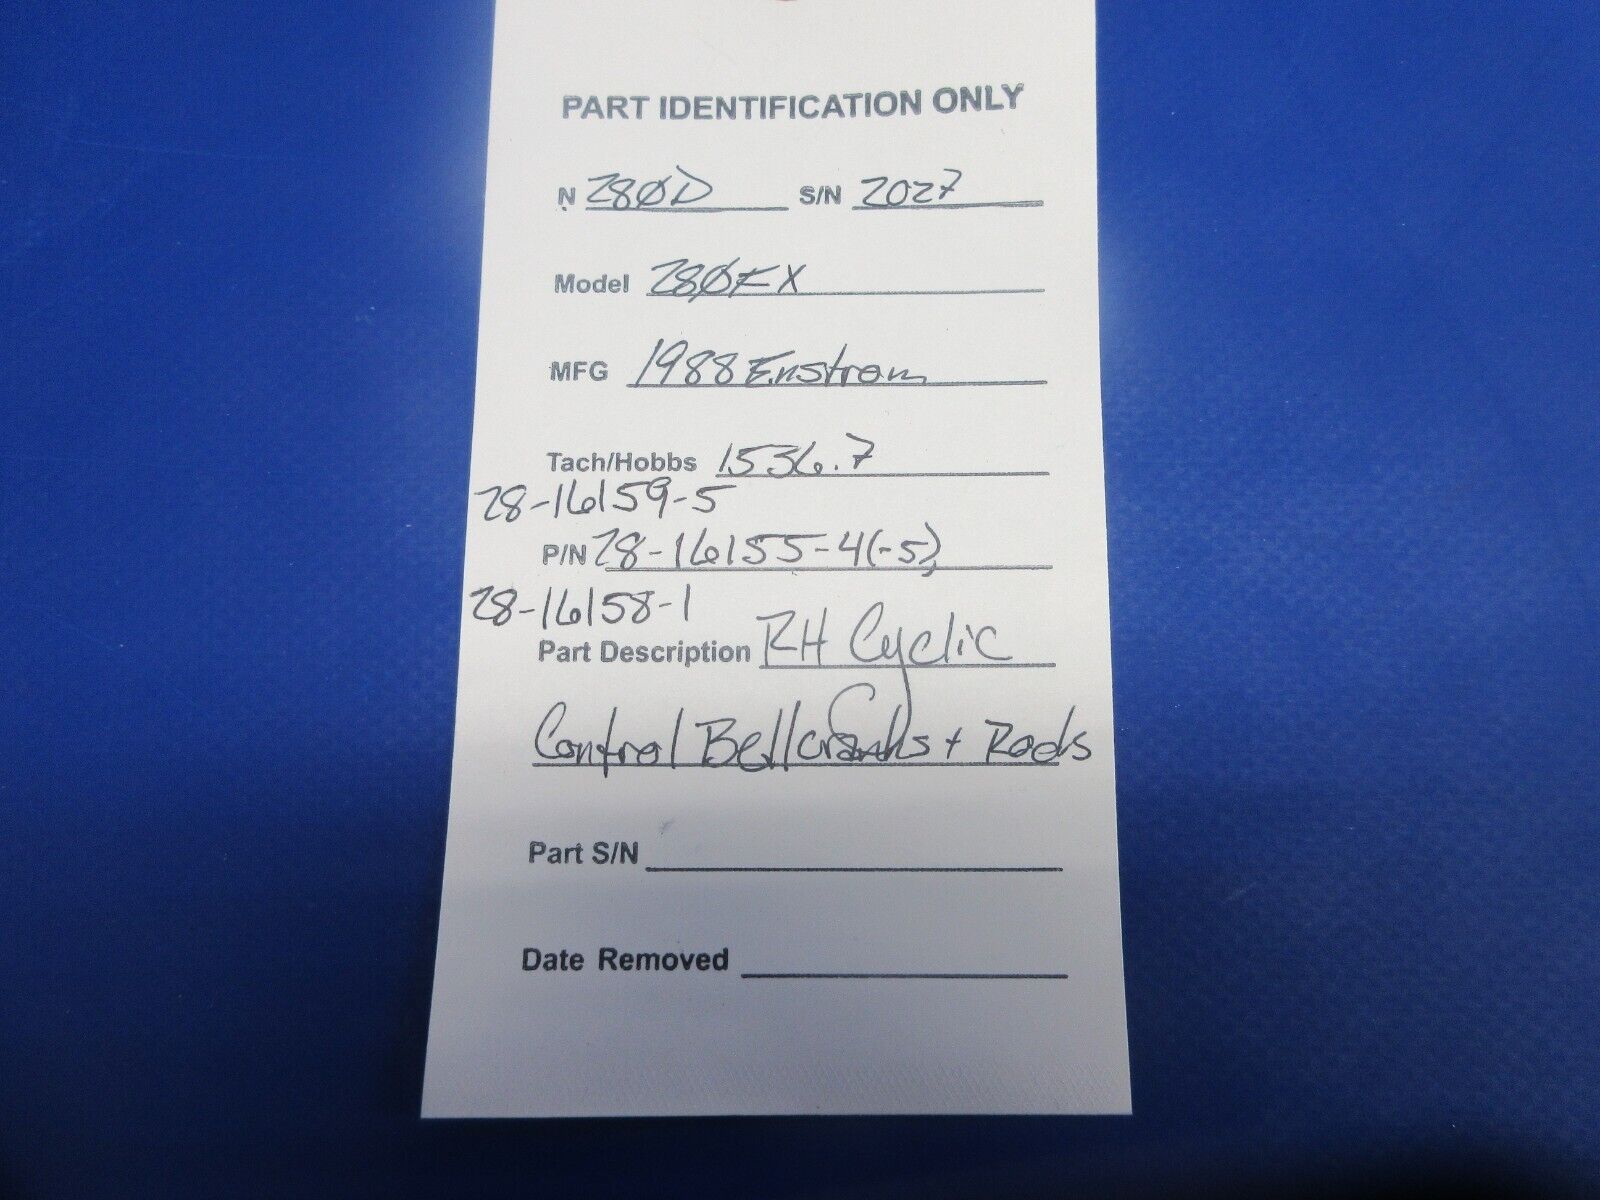 PART IDENTIFICATION ONLY
N 280D S/N 2027
Model 280FX
MFG 1988 Enstrom
Tach/Hobbs 1536.7
28-16159-5
P/N 28-16155-4(-5),
28-16158-1
Part Description RH Cyclic
Control Bellcranks + Rods
Part S/N
Date Removed